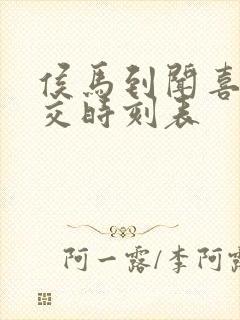 侯马到闻喜
交时刻表
阿一露/李阿露